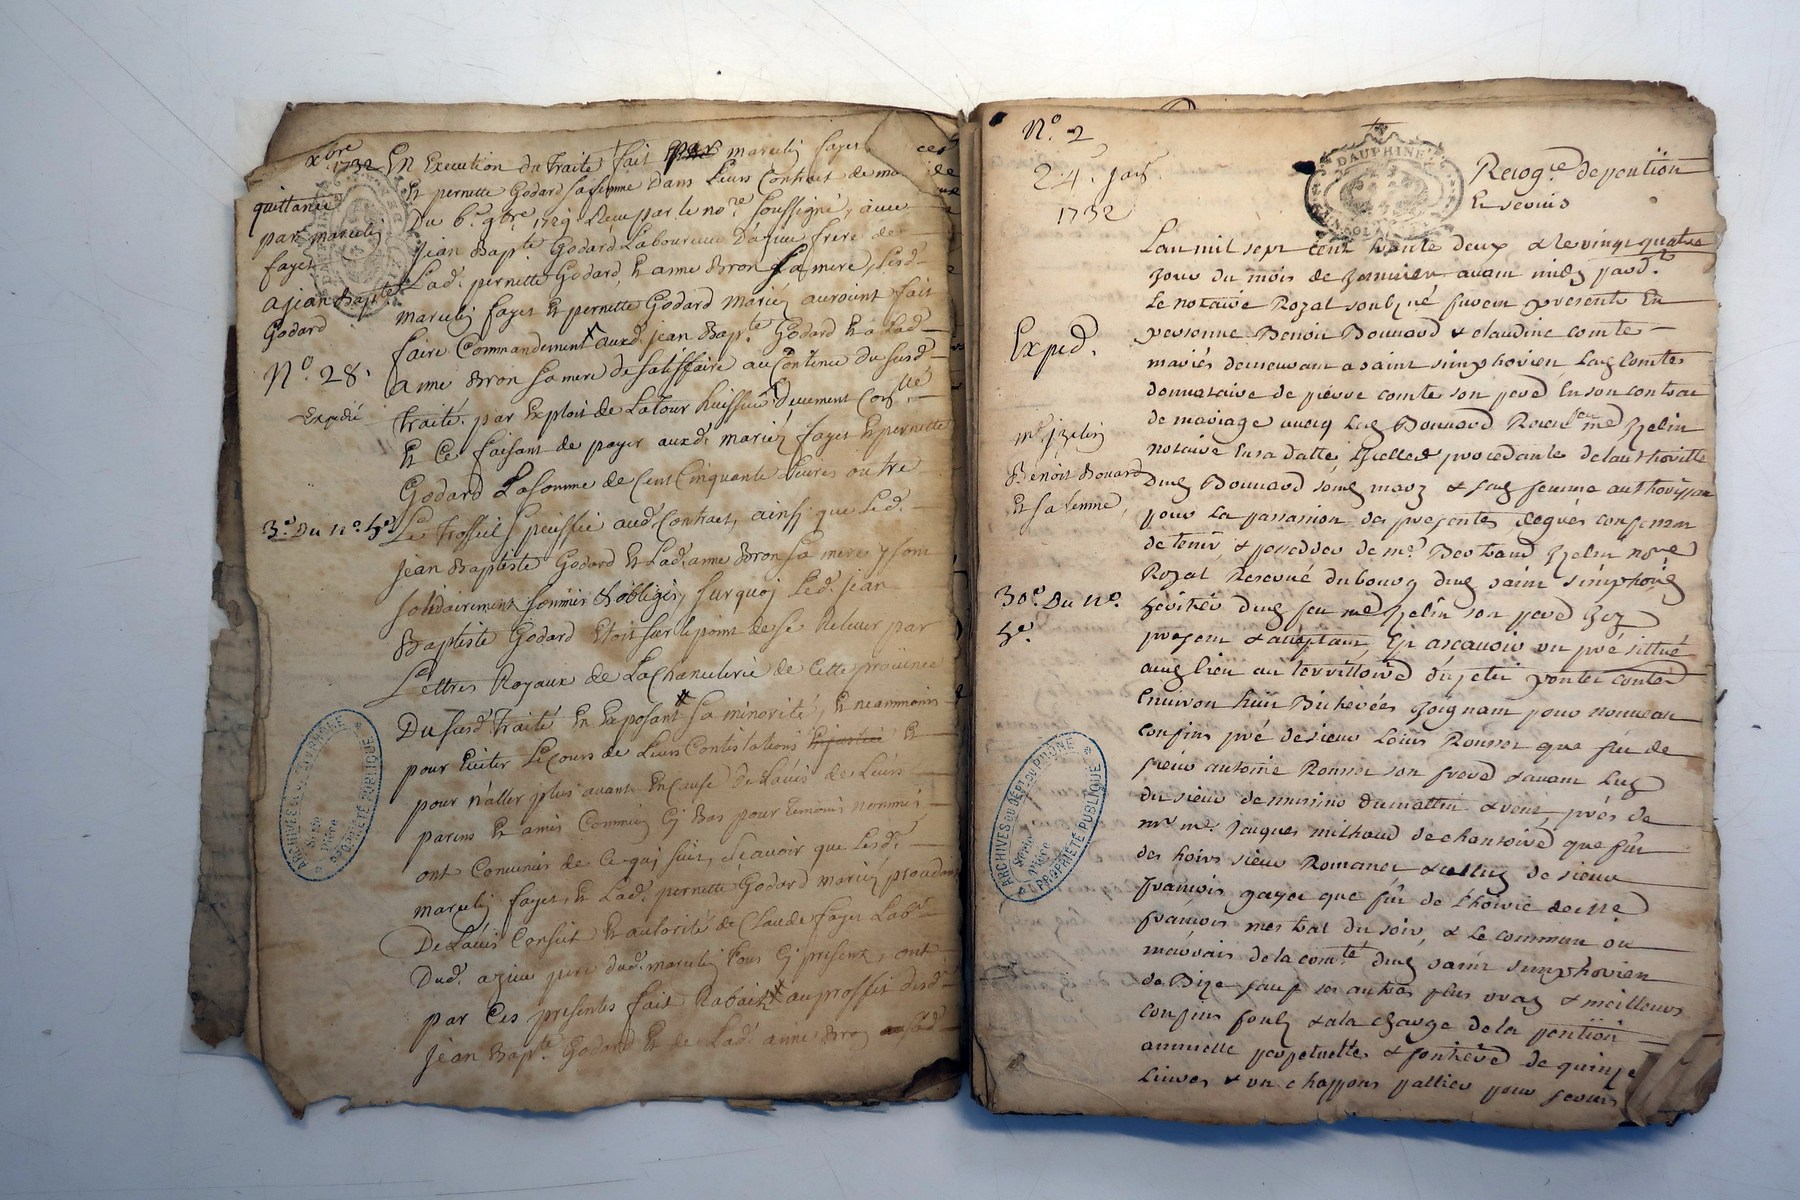 xbre 1732
quittance
par marcelij
fayet
a jean Bapte
Godard
No. 28.
Expedié
3e. Du no. 5e
En Execution du traité fait marcelij fayet
Et pernette Godard sa femme Dans Leurs Contrat de ma
Du 6e. 9bre. 1729 Receu par le nore. soussigné, avec
Jean Bapte. Godard Laboureur D'agieu frere de
Lad. pernette Godard, Et anne Bron sa mere, Lesd.
marcelij fayet Et pernette Godard mariéz auroient fait
faire Commandement auxd. jean Bapte. Godard Et a Lad.
anne Bron sa mere de satisffaire au Contenu du susd.
traité par Exploit de Latour huissier Deuement Conllé
Et Ce faisant de payer auxd. mariéz fayet Et pernette
Godard La somme de Cent Cinquante Livres outre
Le trossel speciffié aud. Contrat, ainsj que Led.
jean Baptiste Godard Et Lad. anne Bron sa mere y sont
solidairement soumis & obligés, sur quoj Led. jean
Baptiste Godard Etoit sur le point de se Relever par
Lettres Royaux de La Chancelerie de Cette province
Du susd. traité En Exposant sa minorité, Et neammoins
pour Eviter Le Cours de Leurs Contestations Et
pour n'aller plus avant En Cause De L'avis de Leurs
parens Et amis Commûns Cj Bas pour temoins nommés
ont Convenus de Ce quj suit, sCavoir que Lesd.
marcelij fayet, Et Lad. pernette Godard mariéz procedans
De L'avis Conseil Et autorité de Claude fayet Labr.
Dud. agieu pere dud. marcelij tous Cj presens, ont
par Ces presentes fait Rabais au proffit desd.
jean Bapte. Godard Et de Lad. anne Bron
No. 2
24. janv.
1732
Exped.
me jzelin
Benoit Bouard
Et sa femme,
30e. Du no.
5e.
DAUPHINÉ
Recogce. de pention
Et servis
Lan mil sept cent trente deux & le vingt quatre
jour du mois de janvier avant midy pardt.
Le notaire Royal soubzné furent presents En
personne Benoit Bouvard & claudine comte
mariés demeurant a saint simphorien Lad comte
donnataire de pierre comte son pere En son contrat
de mariage avecq Led Bouvard Receu feu me jzelin
notaire En sa datte, Jcelle procedante de lauthorité
dud Bouvard
pour La passassion des presentes
de tenir, & posedder de me. Bertrand jzelin nore
Royal Reservé du bourg dud saint simphorien
heritier dud feu me jzelin son pere jcy
present & acceptant, Et ascavoir un pré sittué
aud lieu au territoire
Environ huit Bicherées joignant pour nouveau
confins pré de sieur Louis Ronser que fût de
sieur antoine Ronser son frere & avant Luy
du sieur de murino du mattin & vent, prés de
mr me. jacques milhaud de chantoire que fût
des hoirs sieur Romanet & celluy de sieur
françois gayet que fût de L'hoirie de me
françois mestral du soir, & Le commun ou
mauvais de la comte dud saint simphorien
de Bize sauf ses autres plus vray & meilleurs
confins soulz & a la charge de la pention
annuelle perpetuelle, & fonciere de quinze
Livres & un chappons pallier pour servis
ARCHIVES DU DEPt. DU RHÔNE
Série
Pièce
PROPRIÉTÉ PUBLIQUE
ARCHIVES DU DEPt. DU RHÔNE
Série
Pièce
PROPRIÉTÉ PUBLIQUE